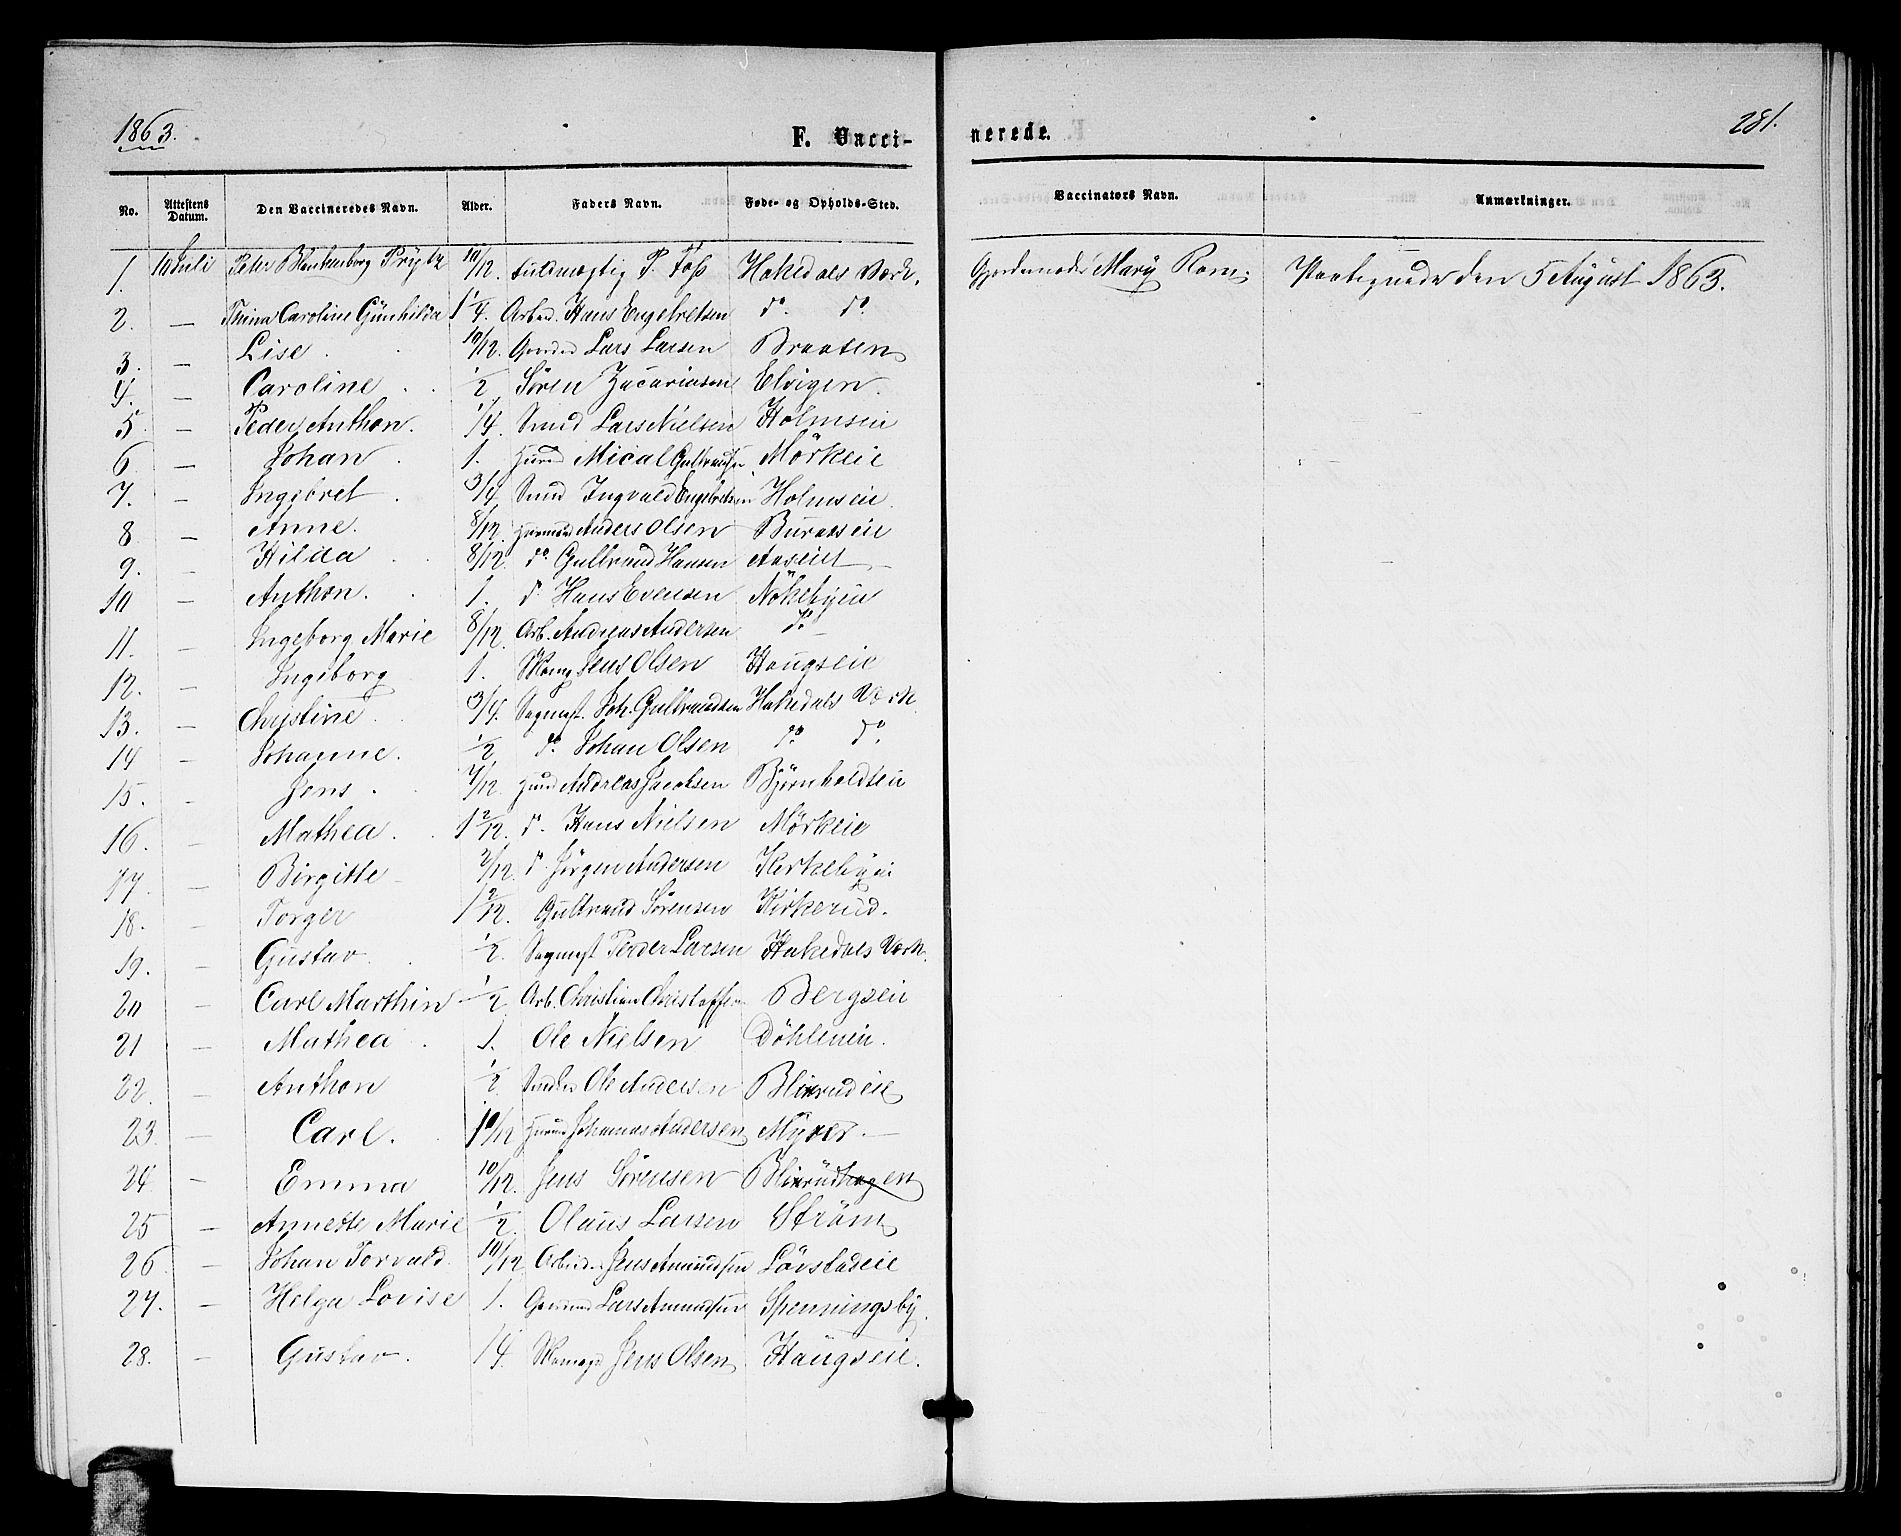 1863.
F. Vacci-
nerede.
281.
No. Attestens Datum. Den Vaccineredes Navn. Alder. Faders Navn. Føde- og Opholds-Sted. Vaccinators Navn. Anmærkninger.
1. 10 Juli Peter Blankenborg Prÿtz 10/12. Fuldmægtig P. Foss Hakedals Værk. Gjordemoder Marÿ Rom. Protegnede den 5 August 1863.
2. — Caroline Günhilda 1 1/4. Arbed. Hans Engebretsen do. do.
3. — Lise. 10/12. Gaardm Lars Larsen Braaten
4. — Caroline. 1/2 Sören Zacariasen Elvigen.
5. — Peder Anthon. 1/4. Smed Lars Nielsen Holmseie
6. — Johan. 1. Husm Mical Gulbransen Mörkeie
7. — Ingebret. 3/4. Smed Ingvald Engebretsen Holmseie
8 — Anne. 8/12. Husmand Anders Olsen Buraaseie
9. — Hilda 8/12. do. Gulbrand Hansen Aaseiet
10 — Anthon. 1. do Hans Evensen Nökebÿeie
11. — Ingeborg Marie 8/12. Arb. Andreas Andersen do.
12. — Ingeborg 1. Skomg Jens Olsen Haugseie
13. — Christine. 3/4. Sagmst. Joh. Gulbrandsen Hakedals Værk
14 — Johanne. 1/2 do. Johan Olsen do. do.
15. — Jens. 7/12. Husm Andreas Jacobsen Bjørnholdteie
16. — Mathea. 1 2/12. do. Hans Nielsen Mörkeie
17. — Birgitte 7/12. do Jörgen Andersen Kirkebÿeie
18. — Torger 1 2/12. Gulbrand Sörensen Kirkerud.
19. — Gustav. 1/2. Sagmst Peder Larsen Hakedals Værk.
20 — Carl Marthin 1/2 Arb. Christian Christoffersen Bergseie
21 — Mathea. 1. Ole Nielsen Döhleneie.
22. — Anthon 1/2 Ole Andersen Blixrudeie
23. — Carl. 10/12 Husm Johannes Andersen Mÿrer. —
24 — Emma 10/12. Jens Sörensen Blixrüdhagen
25 — Annette Marie 1/2. Olaus Larsen Ström
26. — Johan Torvald. 10/12 Arbeider Jens Amundsen Lövstadeie
27. — Helga Lovise 1. Gaardm Lars Amundsen Spenningsbÿ.
28. — Gustav. 1/4. Skomagr Jens Olsen Haugseie.